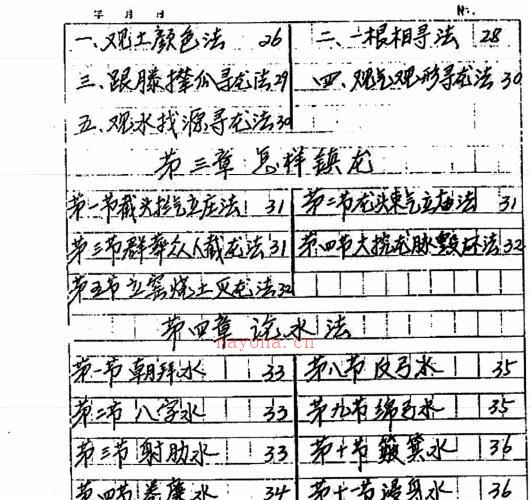 年 月 日 №.
一、观土颜色法 26 二、一根相寻法 28
三、跟藤摸瓜寻龙法 29 四、观气观形寻龙法 30
五、观水找源寻龙法 30
第三章 怎样镇龙
第一节截头拦气立庄法 31 第二节龙头束气立庙法 31
第三节群葬众人截龙法 31 第四节大挖龙脉毁坏法 32
第五节立窑烧土灭龙法 32
第四章 论水法
nayona.cn
第一节 朝拜水 33 第八节 反弓水 35
第二节 八字水 33 第九节 绵弓水 35
第三节 射肋水 33 第十节 簸箕水 36
第四节 卷廉水 34 第十一节 浸身水 36